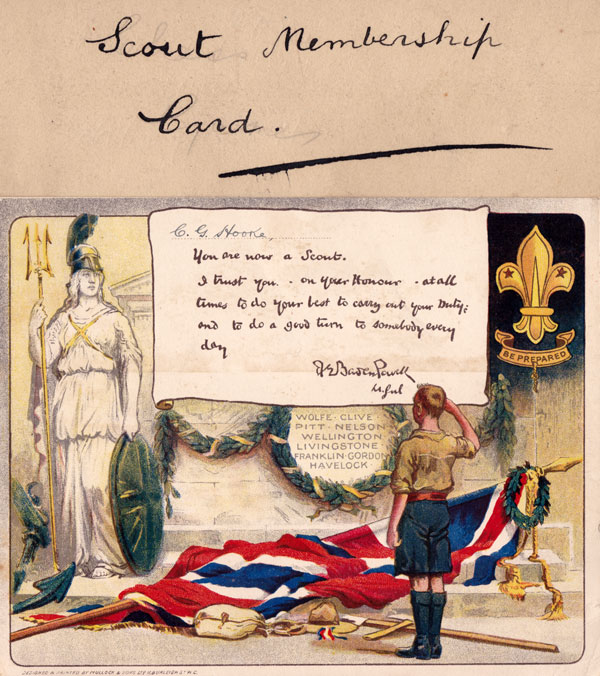 Scout Membership
Card.
C. G. Hooke,
You are now a Scout.
I trust you - on your Honour - at all
times to do your best to carry out your Duty:
and to do a good turn to somebody every
day
BE PREPARED
WOLFE · CLIVE
PITT · NELSON
WELLINGTON
LIVINGSTONE
FRANKLIN · GORDON
HAVELOCK
DESIGNED & PRINTED BY